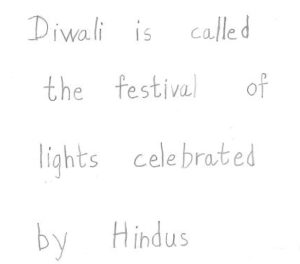 Diwali is called
the festival of
lights celebrated
by Hindus